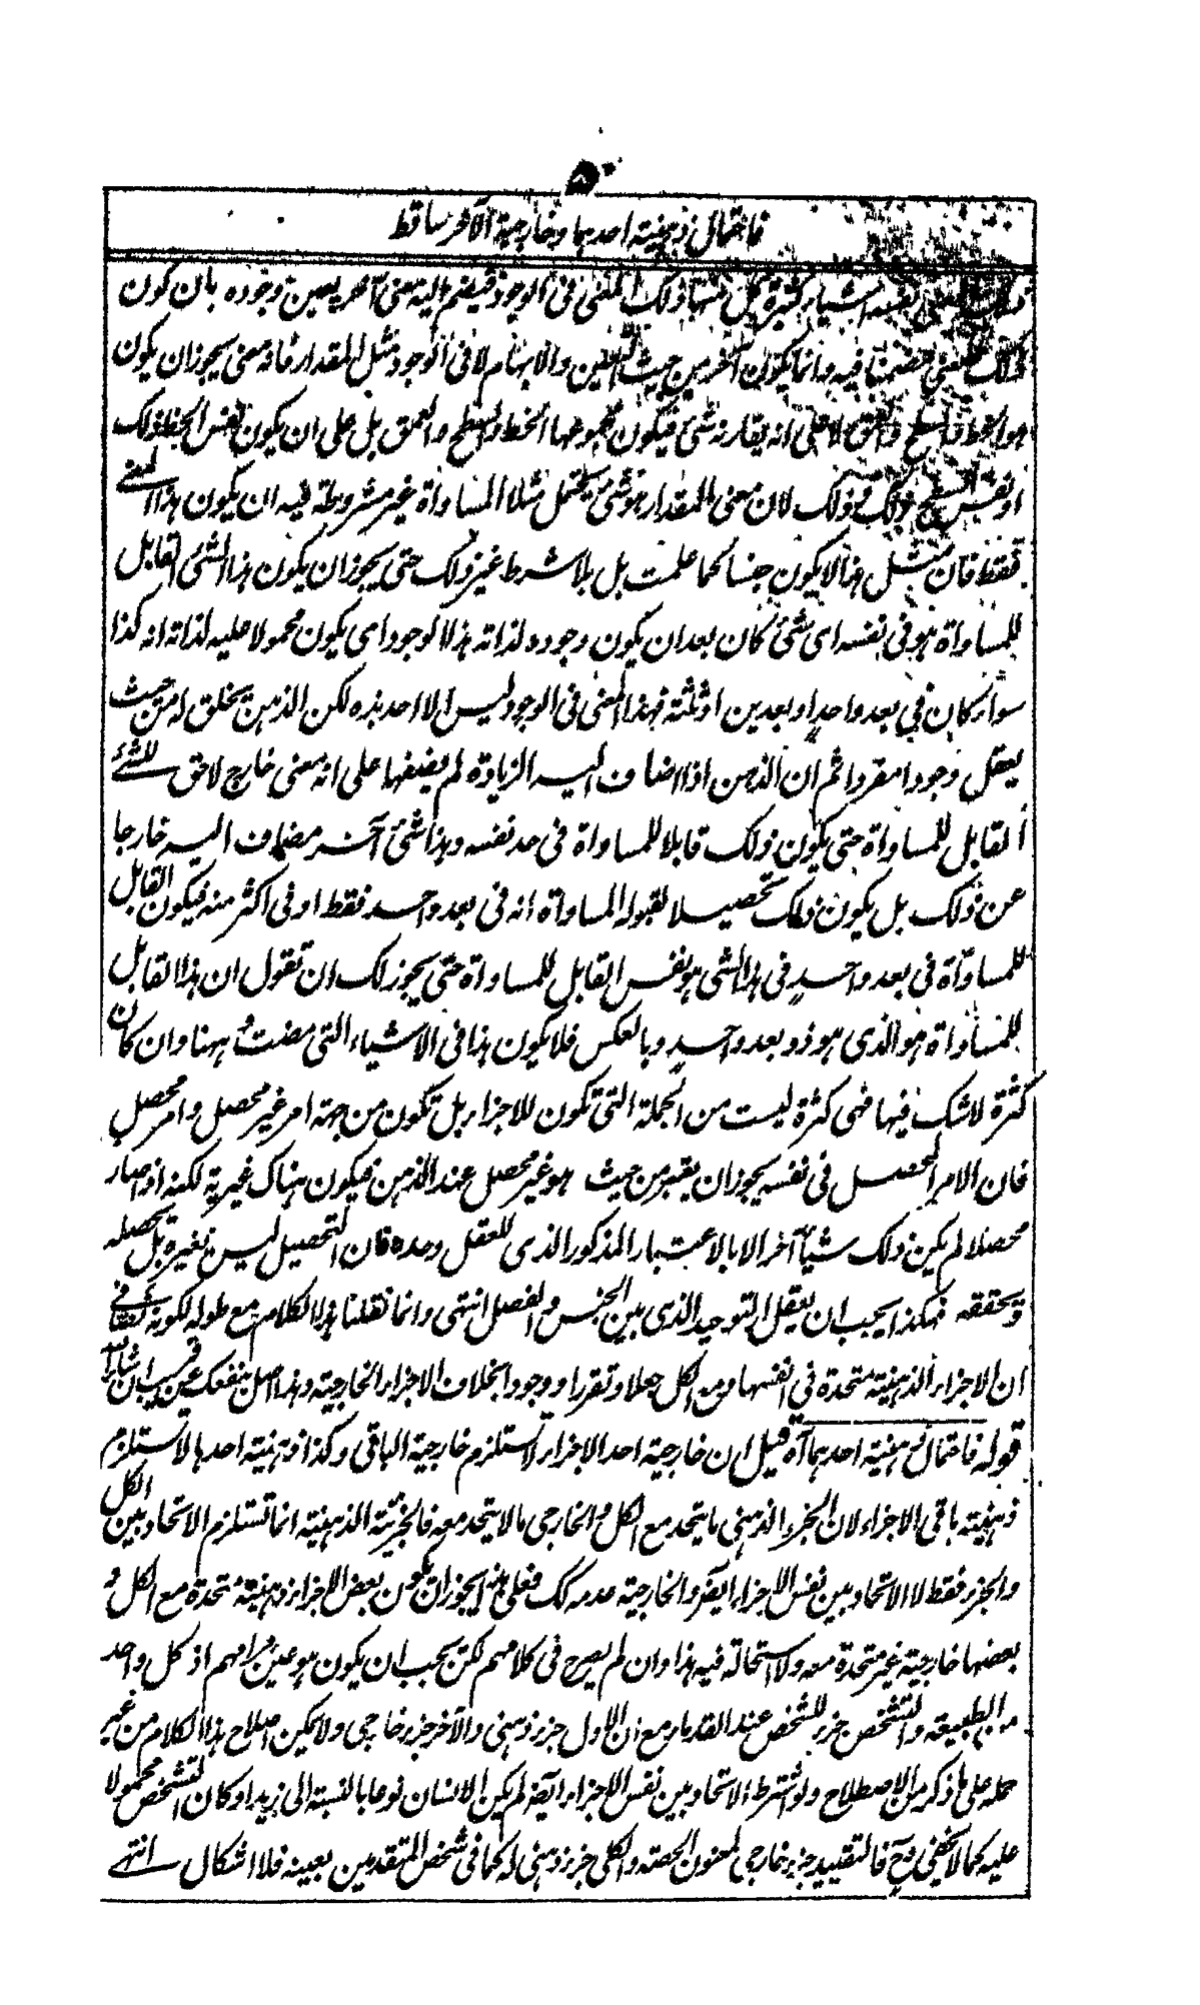 ٥٠
فاحتمال ذهنية احدهما وخارجية الآخر ساقط
ذلك المعنى نفسه اشياء كثيرة كل منها ذلك المعنى فى الوجود فيضم اليه معنى آخر يعين وجوده بان يكون
ذلك المعنى متضمنا فيه وانما يكون آخر من حيث التعين والابهام لا فى الوجود مثل المقدار فانه معنى يجوز ان يكون
هو الخط والسطح والعمق لا على انه يقارنه شئ فيكون مجموعها الخط والسطح والعمق بل على ان يكون نفس الخط ذلك
او نفس السطح ذلك وذلك لان معنى المقدار هو شئ يحتمل مثلا المساواة غير مشروطة فيه ان يكون هذا المعنى
فقط فان مثل هذا لا يكون جنسا كما علمت بل بلا شرط غير ذلك حتى يجوز ان يكون هذا الشئ القابل
للمساواة هو فى نفسه اى شئ كان بعد ان يكون وجوده لذاته هذا الوجود اى يكون محمولا عليه لذاته انه كذا
سواء كان فى بعد واحد او بعدين او ثلثة فهذا المعنى فى الوجود ليس الا احد هذه لكن الذهن يخلق له من حيث
يعقل وجودا مفردا ثم ان الذهن اذا اضاف اليه الزيادة لم يضفها على انه معنى خارج لاحق للشئ
القابل للمساواة حتى يكون ذلك قابلا للمساواة فى حد نفسه وهذا شئ آخر مضاف اليه خارجا
عن ذلك بل يكون ذلك تحصيلا لقبوله المساواة انه فى بعد واحد فقط او فى اكثر منه فيكون القابل
للمساواة فى بعد واحد فى هذا الشئ هو نفس القابل للمساواة حتى يجوز لك ان تقول ان هذا القابل
للمساواة هو الذى هو ذو بعد واحد وبالعكس فلا يكون هذا فى الاشياء التى مضت وههنا وان كان
كثرة لا شك فيها فهى كثرة ليست من الجملة التى تكون للاجزاء بل تكون من جهة امر غير محصل وامر محصل
فان الامر المحصل فى نفسه يجوز ان يعتبر من حيث هو غير محصل عند الذهن فيكون هناك غيرية لكنه اذا صار
محصلا لم يكن ذلك شيأ آخر الا بالاعتبار المذكور الذى للعقل وحده فان التحصيل ليس يغيره بل يحصله
ويحققه فهكذا يجب ان يعقل التوحيد الذى بين الجنس والفصل انتهى وانما نقلنا هذا الكلام مع طوله لكونه نصا فى
ان الاجزاء الذهنية متحدة فى انفسها ومن الكل جعلا وتقررا ووجودا بخلاف الاجزاء الخارجية وهذا اصل ينفعك عن قريب ان شاء الله
قوله فاحتمال ذهنية احدهما آه قيل ان خارجية احد الاجزاء لا تستلزم خارجية الباقى وكذا ذهنية احدها لا تستلزم
ذهنية باقى الاجزاء لان الجزء الذهنى ما يتحد مع الكل والخارجى ما لا يتحد معه فالجزئية الذهنية انما تستلزم الاتحاد بين الكل
والجزء فقط لا الاتحاد بين نفس الاجزاء ايضا والخارجية عدمه كك فعلى هذا يجوز ان يكون بعض الاجزاء ذهنية متحدة مع الكل و
بعضها خارجية غير متحدة معه ولا استحالة فيه هذا وان لم يصرح فى كلامهم لكن يجب ان يكون هو عين مرامهم اذ كل واحد
من الطبيعة والتشخص جزء للشخص عند القدماء مع ان الاول جزء ذهنى والآخر جزء خارجى ولا يمكن اصلاح هذا الكلام من غير
حمله على ما ذكر من الاصطلاح ولو اشترط الاتحاد بين نفس الاجزاء ايضا لم يكن الانسان نوعا بالنسبة الى زيد او كان التشخص محمولا
عليه كما لا يخفى وح فالتقييد جزء خارجى لمعنون الحصة والكلى جزء ذهنى له كما فى شخص المتقدمين بعينه فلا اشكال انتهى